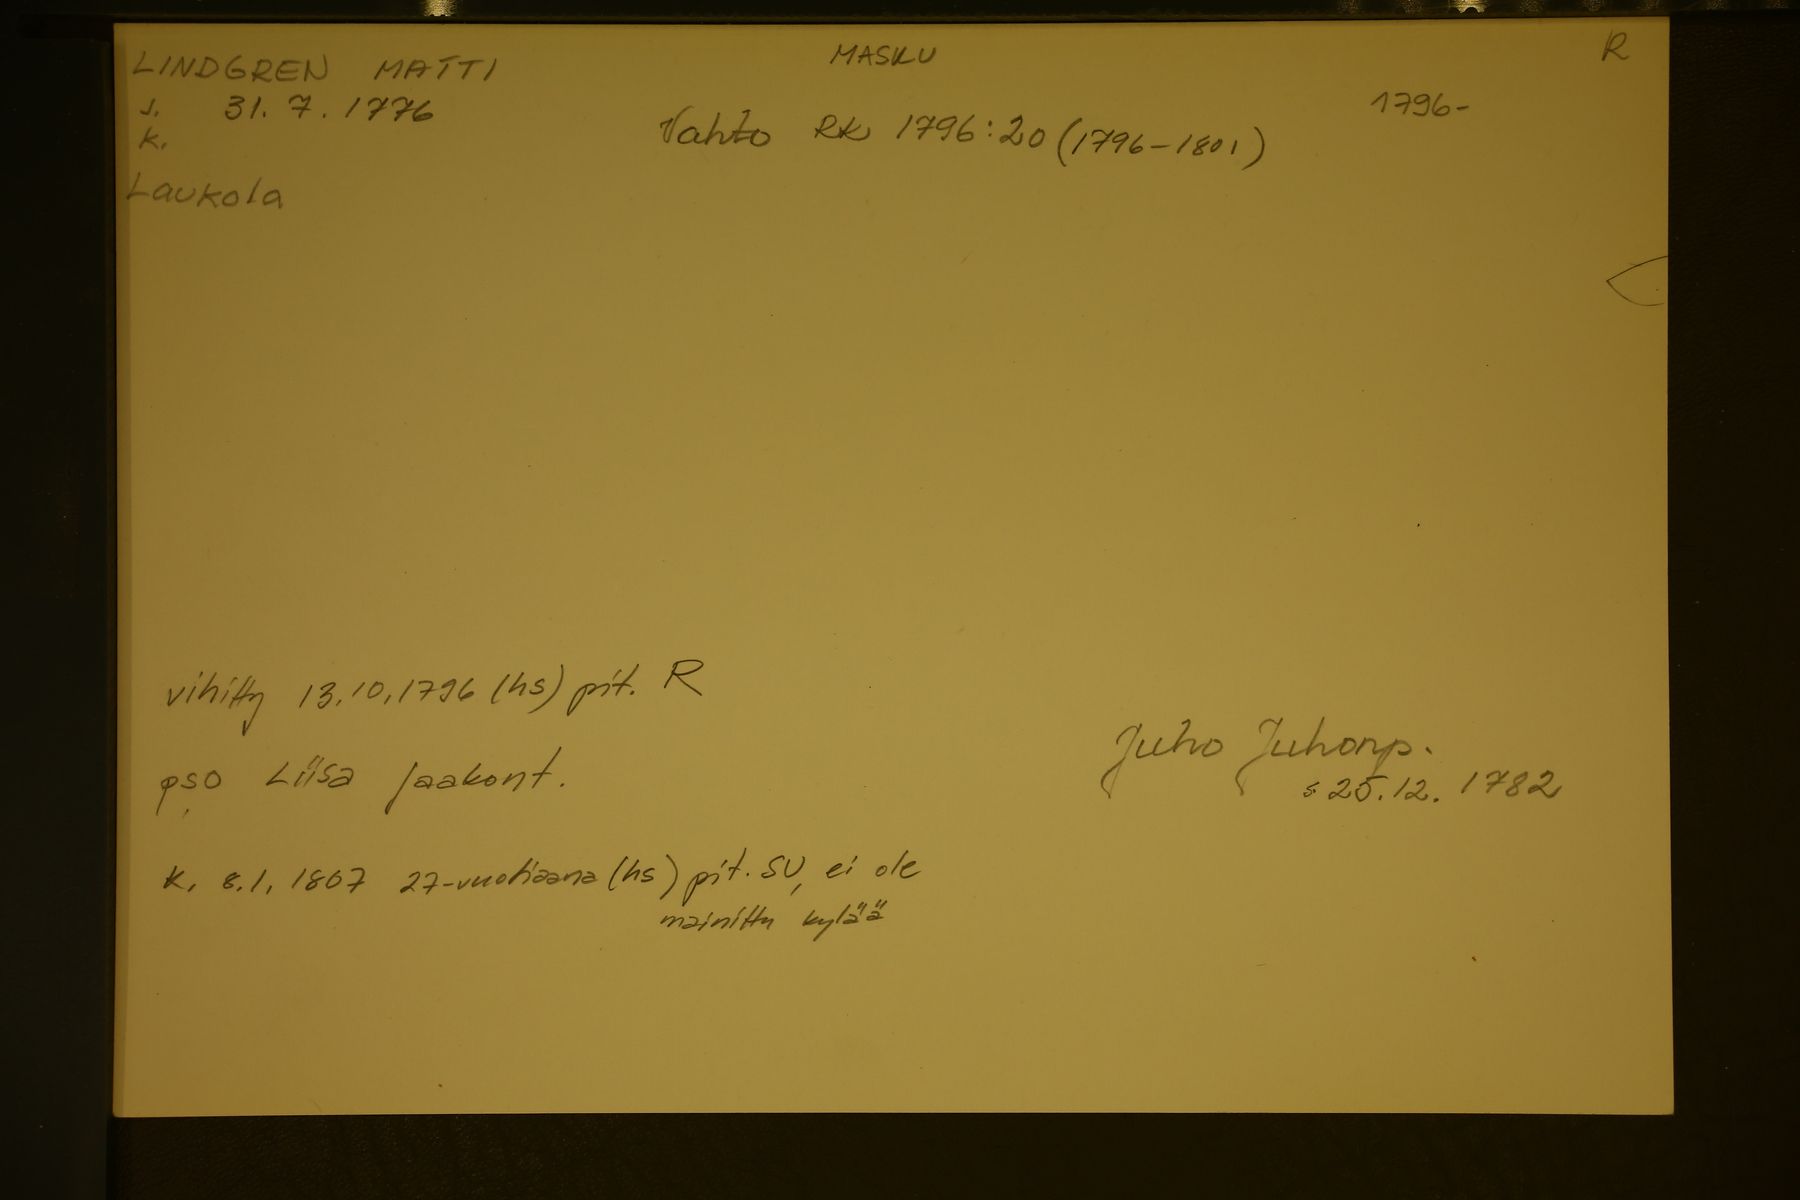 LINDGREN MATTI
MASKU
R
s. 31. 7. 1776
1796-
k.
Vahto RK 1796:20 (1796-1801)
Laukola
vihitty 13.10.1796 (hs) pit. R
pso Liisa Jaakont.
Juho Juhonp.
s 25.12. 1782
k. 8.1. 1807 27-vuotiaana (hs) pit. SU, ei ole
mainittu kylää